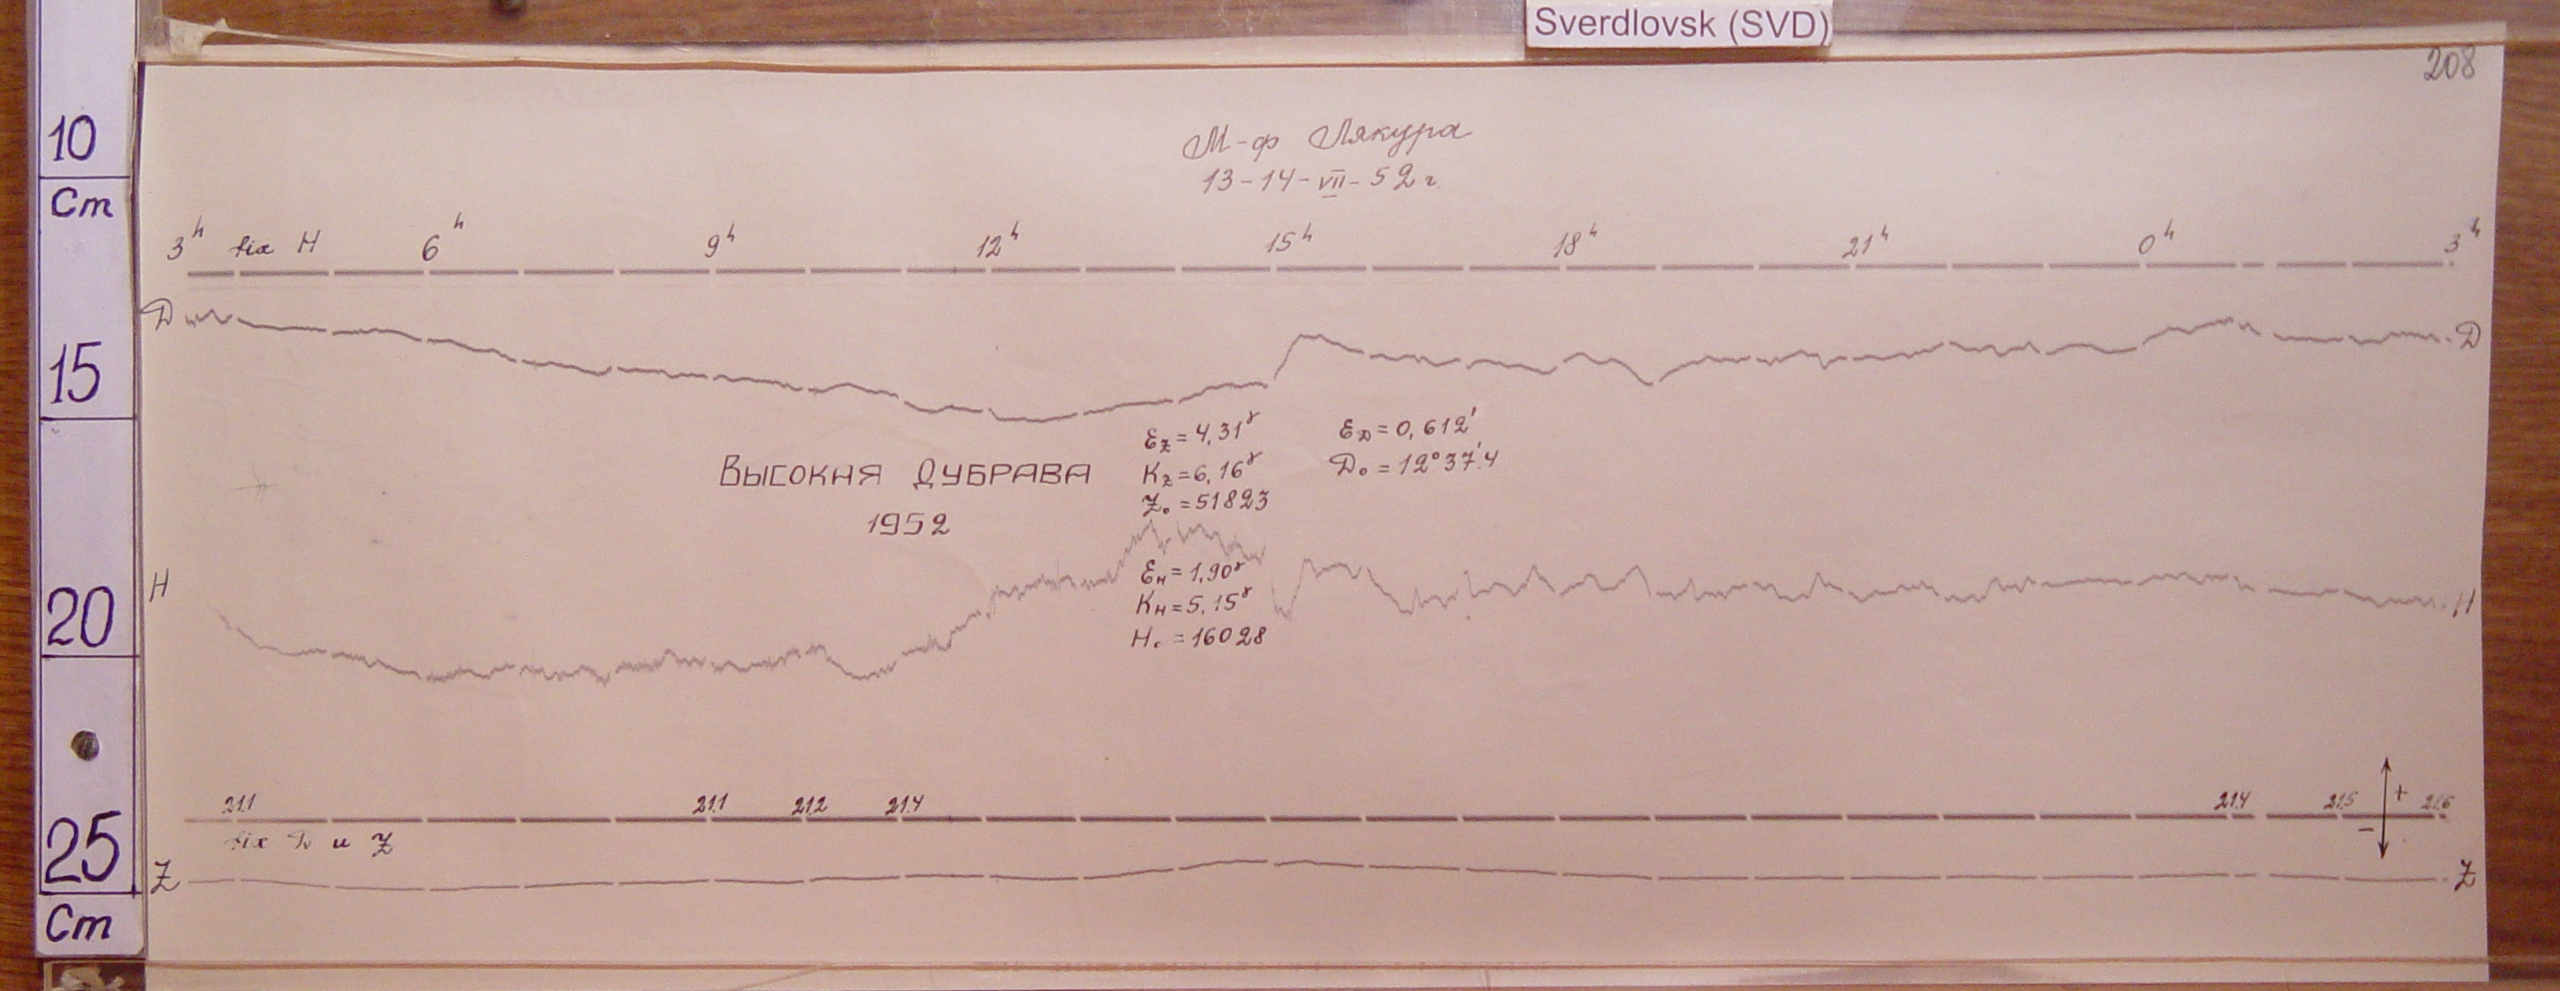 Sverdlovsk (SVD)
208
10
Cm
15
20
25
Cm
М-ф Лякура
13-14-VII-52 г.
3h fix H 6h 9h 12h 15h 18h 21h 0h 3h
D D
Ez = 4,31γ
Kz = 6,16γ
Z₀ = 51823
ED = 0,612'
D₀ = 12°37'.4
ВЫСОКАЯ ДУБРАВА
1952
H H
EH = 1,90γ
KH = 5,15γ
H₀ = 16028
21.1 21.1 21.2 21.4 21.4 21.5 21.6
+
−
fix D и Z
Z Z